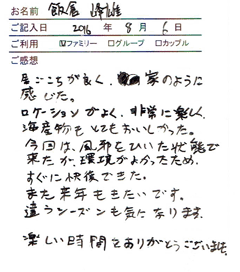 お名前 飯尾 峰雄
ご記入日 2016 年 8 月 6 日
ご利用 ☑ファミリー □グループ □カップル
ご感想
居ごこちが良く、家のように
感じた。
ロケーションがよく、非常に楽しく、
海産物もとてもおいしかった。
今回は、風邪をひいた状態で
来たが、環境がよかったため、
すぐに快復できた。
また来年もきたいです。
違うシーズンも気になります。
楽しい時間をありがとうございました。